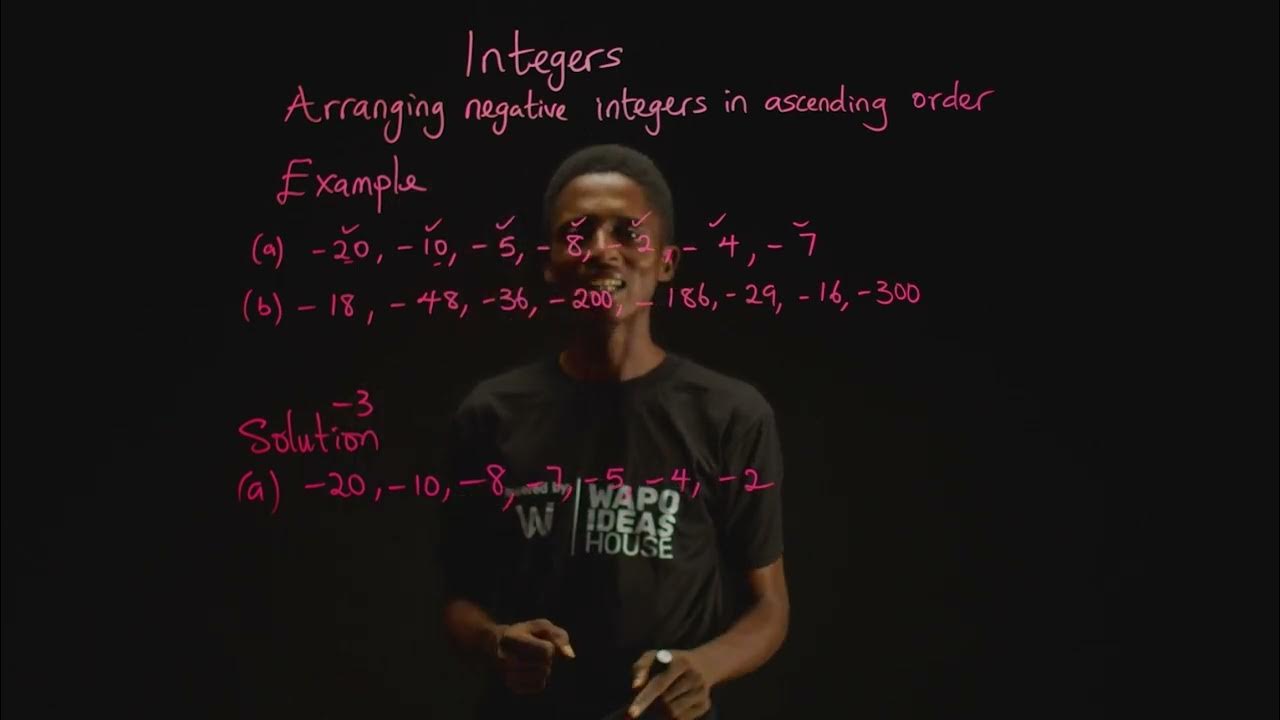 Integers
Arranging negative integers in ascending order
Example
(a) -20, -10, -5, -8, -2, -4, -7
(b) -18, -48, -36, -200, -186, -29, -16, -300
-3
Solution
(a) -20, -10, -8, -7, -5, -4, -2
by
WAPO
IDEAS
HOUSE